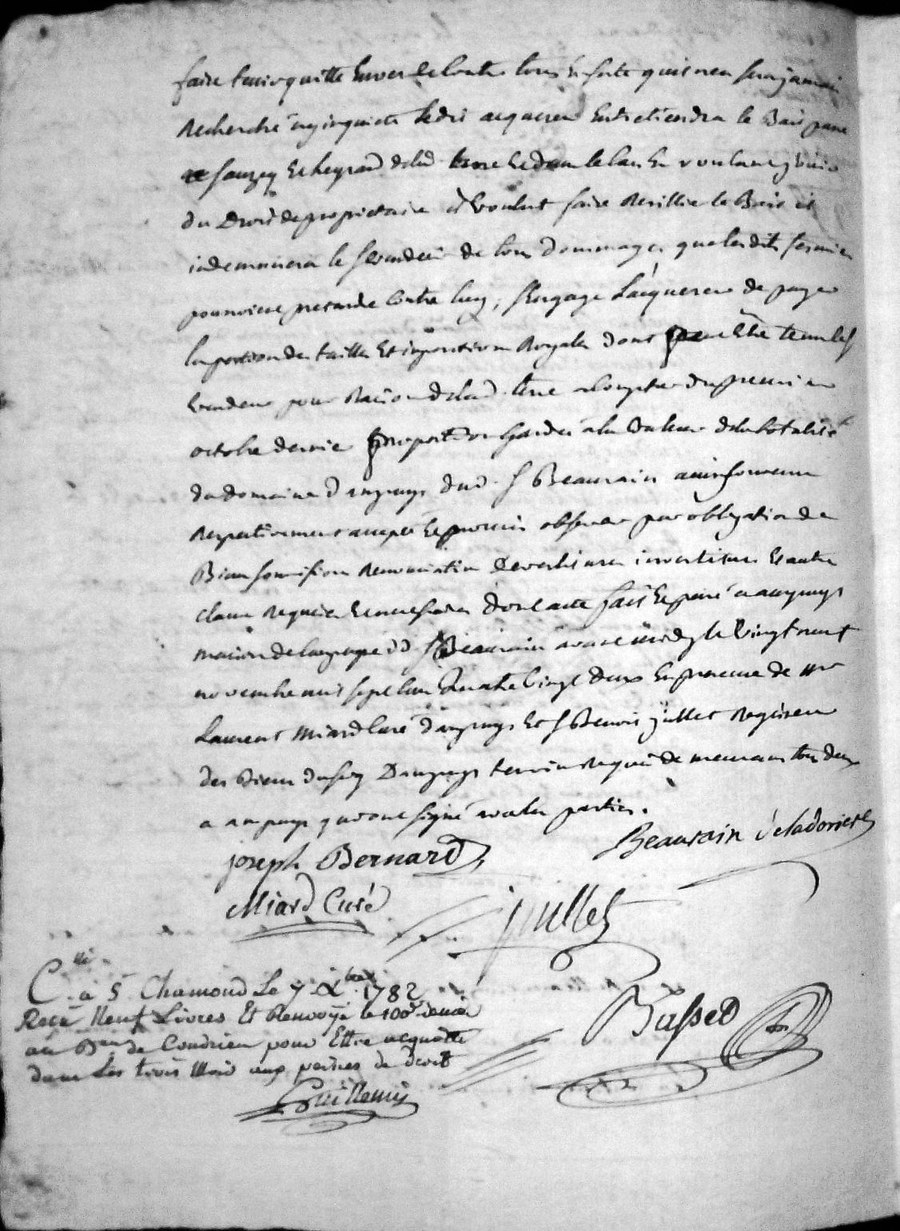 faire tenir quitte envers et contre tous en sorte qu'il n'en sera jamais
Recherché ny inquieté ledit acquereur entretiendra le Bail
Sauzey et heyraud de lad. terre et dans le cas en voulant jouir
du Droit de proprietaire il voulut faire Resillier le Bail il
indemnisera le s. vendeur de tous dommages que lesdits fermiers
pourroient pretendre contre luy, s'engage l'acquereur de payer
la portion des tailles et impositions Royales dont peut etre tenu led s
vendeur pour Raison de lad. terre a compter du premier
octobre dernier proportion gardée a la valeur de la totalité
du domaine d'ampuys dud. s Beaurain ainsi convenu
Respectivement accepté et promis observer par obligation de
Biens soumission Renonciation investiture et autre
clause Requise et necessaire dont acte fait et passé a ampuys
maison de campagne dud s Beaurain avant midy le vingt neuf
novembre mil sept cent quatre vingt deux en presence de mre
Laurent Miard Curé d'ampuys et s Benoit jullet Regisseur
des Biens du s d'ampuys temoins Requis demeurant tous deux
a ampuys qui ont signé avec les parties.
joseph Bernard
Beaurain deladoriere
Miard Curé
jullet
C.lé à St Chamond Le 7 Xbre 1782
Reçu Neuf Livres Et Renvoyé le 100e denier
au Bau de Condrieu pour Ettre acquitté
dans Les trois Mois aux peines de droit
Guillemin
Basset